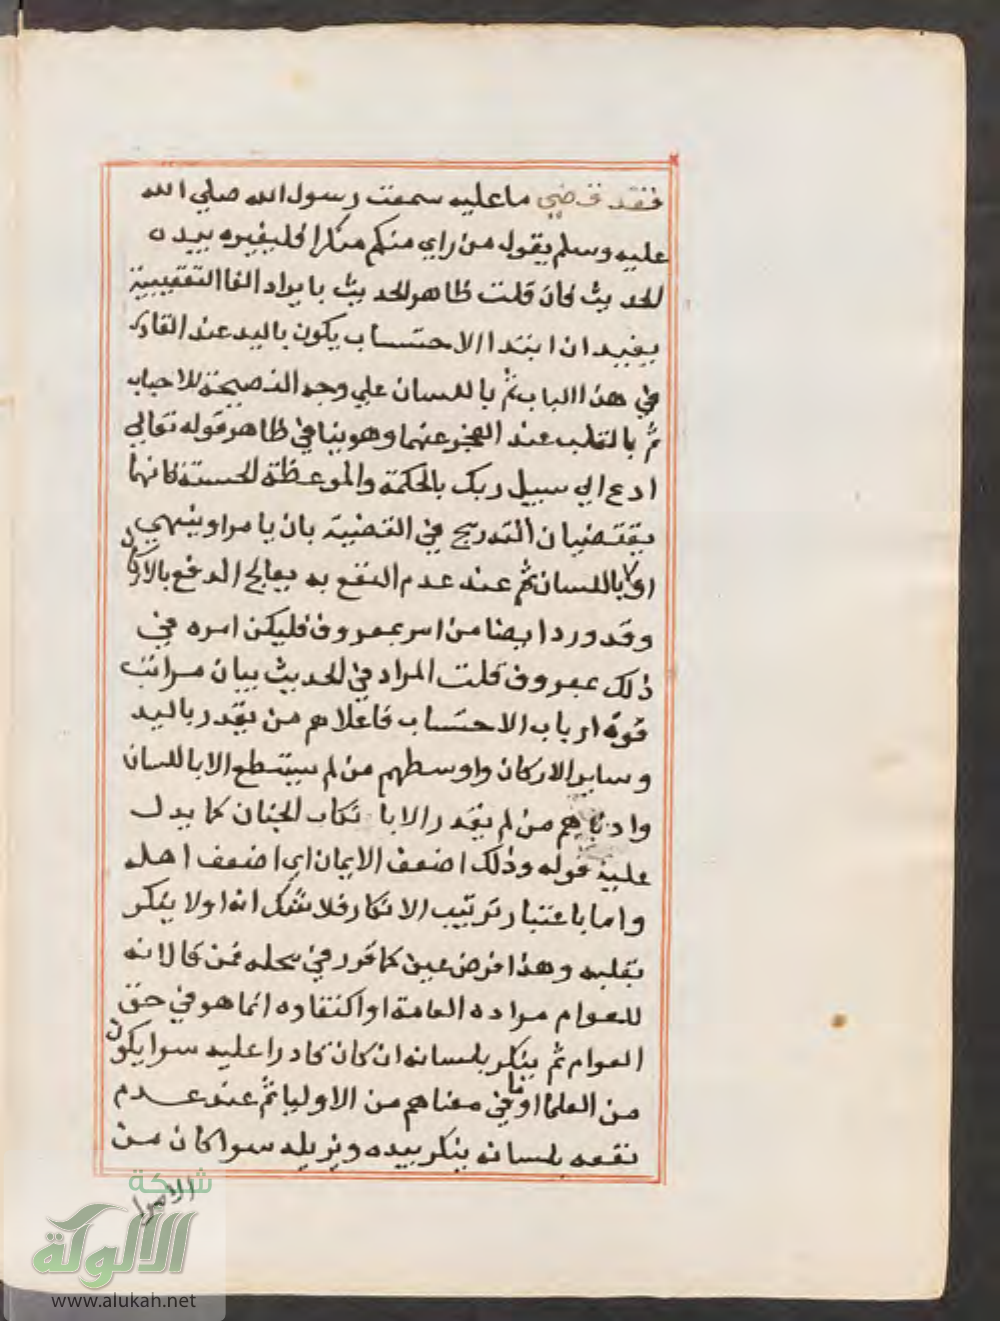 فقد قضي ما عليه سمعت رسول الله صلي الله
عليه وسلم يقول من راي منكم منكرا فليغيره بيده
الحديث فان قلت ظاهر الحديث بايراد الفا التعقيبية
يفيد ان ابتدا الاحتساب يكون باليد عند القادر
في هذا الباب ثم باللسان علي وجه النصيحة للاحباب
ثم بالقلب عند العجز عنهما وهو ينافي ظاهر قوله تعالي
ادع الي سبيل ربك بالحكمة والموعظة الحسنة فانهما
يقتضيان التدريج في القضية بان يامر او ينهي
اولا باللسان ثم عند عدم النفع به يعالج الدفع بالاركان
وقد ورد ايضا من امر بمعروف فليكن امره في
ذلك بمعروف قلت المراد في الحديث بيان مراتب
قوة ارباب الاحتساب فاعلاهم من يقدر باليد
وساير الاركان واوسطهم من لم يستطع الا باللسان
وادناهم من لم يقدر الا بانكار الجنان كما يدل
عليه قوله وذلك اضعف الايمان اي اضعف اهله
واما باعتبار ترتيب الانكار فلا شك انه اولا ينكر
بقلبه وهذا فرض عين كما قرر في محله فمن قال انه
للعوام مراده العامة او اكتفاوه انما هو في حق
العوام ثم ينكر بلسانه ان كان قادرا عليه سوا يكون
من العلما او في معناهم من الاوليا ثم عند عدم
نفعه بلسانه ينكر بيده ويزيله سوا كان من
الامرا
شبكة
الألوكة
www.alukah.net